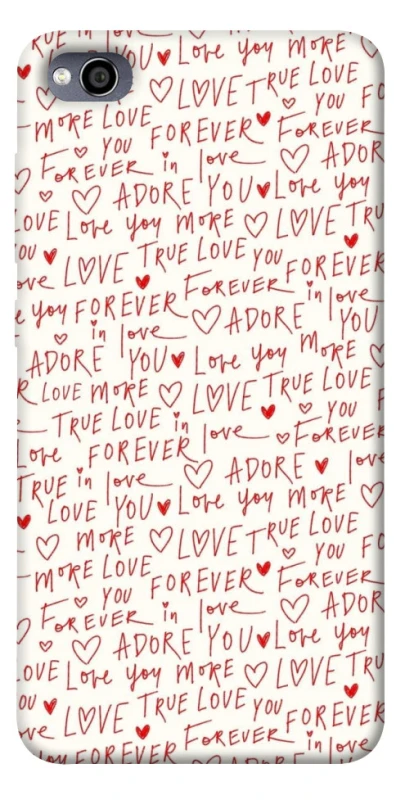 TRUE in love YOU Love you MORE
LOVE TRUE LOVE
MORE LOVE YOU FOREVER FOREVER YOU
FOREVER in love ADOR
ADORE YOU Love you
LOVE Love you MORE LOVE TRU
YOU TRUE LOVE YOU FOREVER
ove LOVE FOREVER in love
e you FOREVER ADORE YOU
in love
ADORE YOU Love you MORE
R LOVE MORE LOVE TRUE LOVE
TRUE LOVE in love YOU
Love FOREVER FOREVER
TRUE in love ADORE love
LOVE YOU Love you MORE
MORE LOVE TRUE LOVE
MORE LOVE YOU FOREVER YOU FO
FOREVER in love FOREVER ADOR
ADORE YOU Love you
LOVE Love you MORE LOVE TRU
OU TRUE LOVE YOU FOREVER
ove LOVE FOREVER in love
you FOREVER ADORE YOU